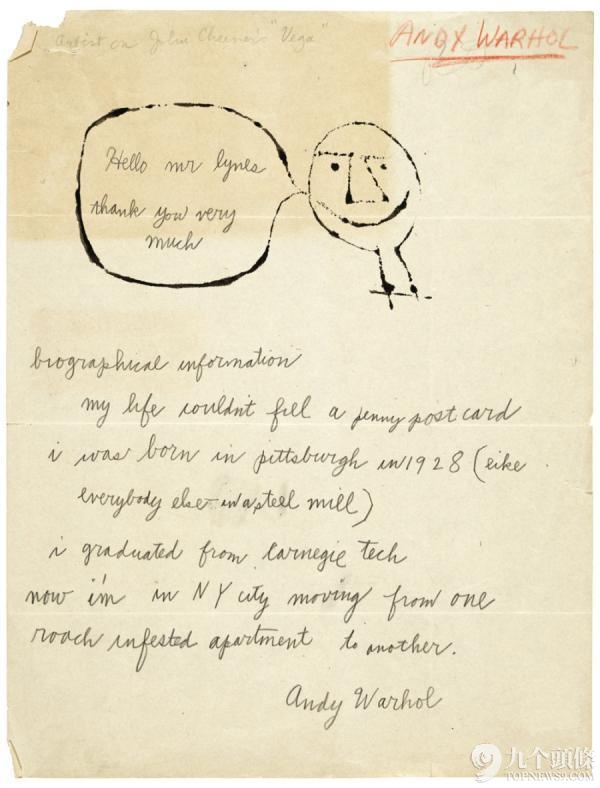 Artist on John Cheever's "Vega"
ANDY WARHOL
Hello mr lynes
thank you very
much
biographical information
my life couldn't fill a penny post card
i was born in pittsburgh in 1928 (like
everybody else - in a steel mill)
i graduated from carnegie tech
now i'm in NY city moving from one
roach infested apartment to another.
Andy Warhol
九个頭條
TOPNEWS9.COM